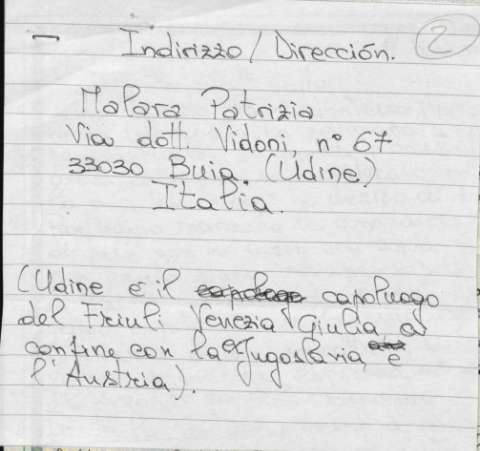 2
– Indirizzo / Dirección.
Malara Patrizia
Via dott. Vidoni, n° 67
33030 Buia. (Udine)
Italia.
(Udine è il capoluogo
del Friuli Venezia Giulia, a
confine con la ex Jugoslavia, e
l'Austria).